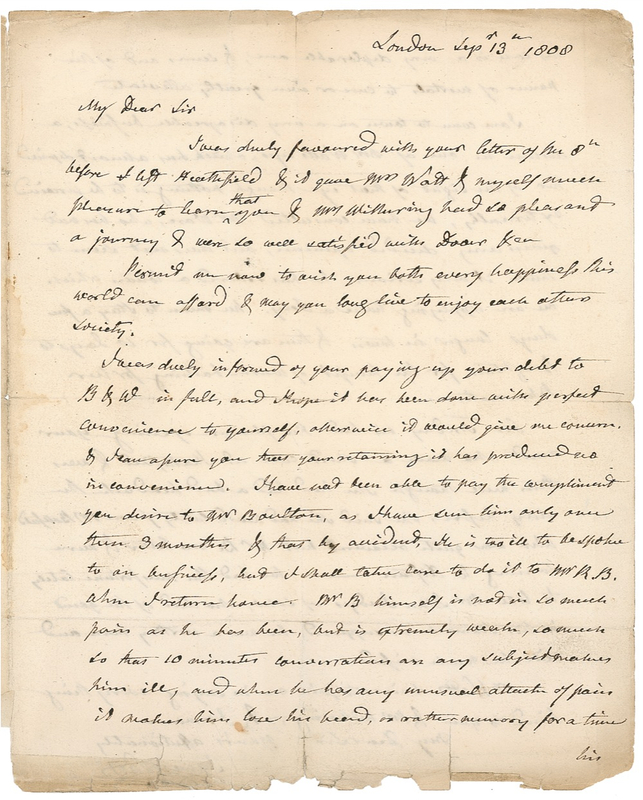 London Sepr 13th 1808
My Dear Sir
I was duely favoured with your letter of the 8th
before I left Heathfield & it gave Mrs Watt & myself much
pleasure to learn that you & Mrs Withering had so pleasant
a journey & were so well satisfied with Dear Ken
Permit me now to wish you both every happiness this
world can afford & may you long live to enjoy each others
society.
I was duely informed of your paying up your debt to
B & W in full, and I hope it has been done with perfect
convenience to yourself, otherwise it would give me concern.
& I can assure you that your retaining it has produced no
inconvenience. I have not been able to pay the compliment
you desire to Mr Boulton, as I have seen him only once
these 3 months & that by accident, He is too ill to be spoke
to on business, but I shall take care to do it to Mr R. B.
when I return home. Mr B himself is not in so much
pain as he has been, but is extremely weak, so much
so that 10 minutes conversation on any subject makes
him ill, and when he has any unusual attack of pain
it makes him lose his head, or rather memory for a time
his